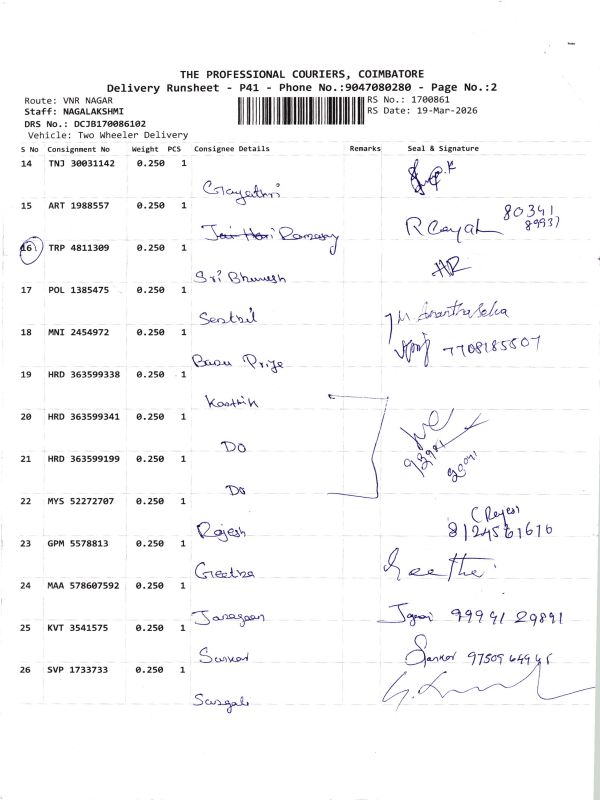 THE PROFESSIONAL COURIERS, COIMBATORE
Delivery Runsheet - P41 - Phone No.:9047080280 - Page No.:2
Route: VNR NAGAR
RS No.: 1700861
Staff: NAGALAKSHMI
RS Date: 19-Mar-2026
DRS No.: DCJB170086102
Vehicle: Two Wheeler Delivery
S No Consignment No Weight PCS Consignee Details Remarks Seal & Signature
14 TNJ 30031142 0.250 1
Gayathri
15 ART 1988557 0.250 1
80341
Jai Hari
16 TRP 4811309 0.250 1
HR
Sri
17 POL 1385475 0.250 1
Senthil
18 MNI 2454972 0.250 1
7708185507
19 HRD 363599338 0.250 1
Karthik
20 HRD 363599341 0.250 1
Do
21 HRD 363599199 0.250 1
Do
22 MYS 52272707 0.250 1
Rajesh
8124561616
23 GPM 5578813 0.250 1
Geetha
Geetha
24 MAA 578607592 0.250 1
99941 29891
25 KVT 3541575 0.250 1
Sankar
Sankar
26 SVP 1733733 0.250 1